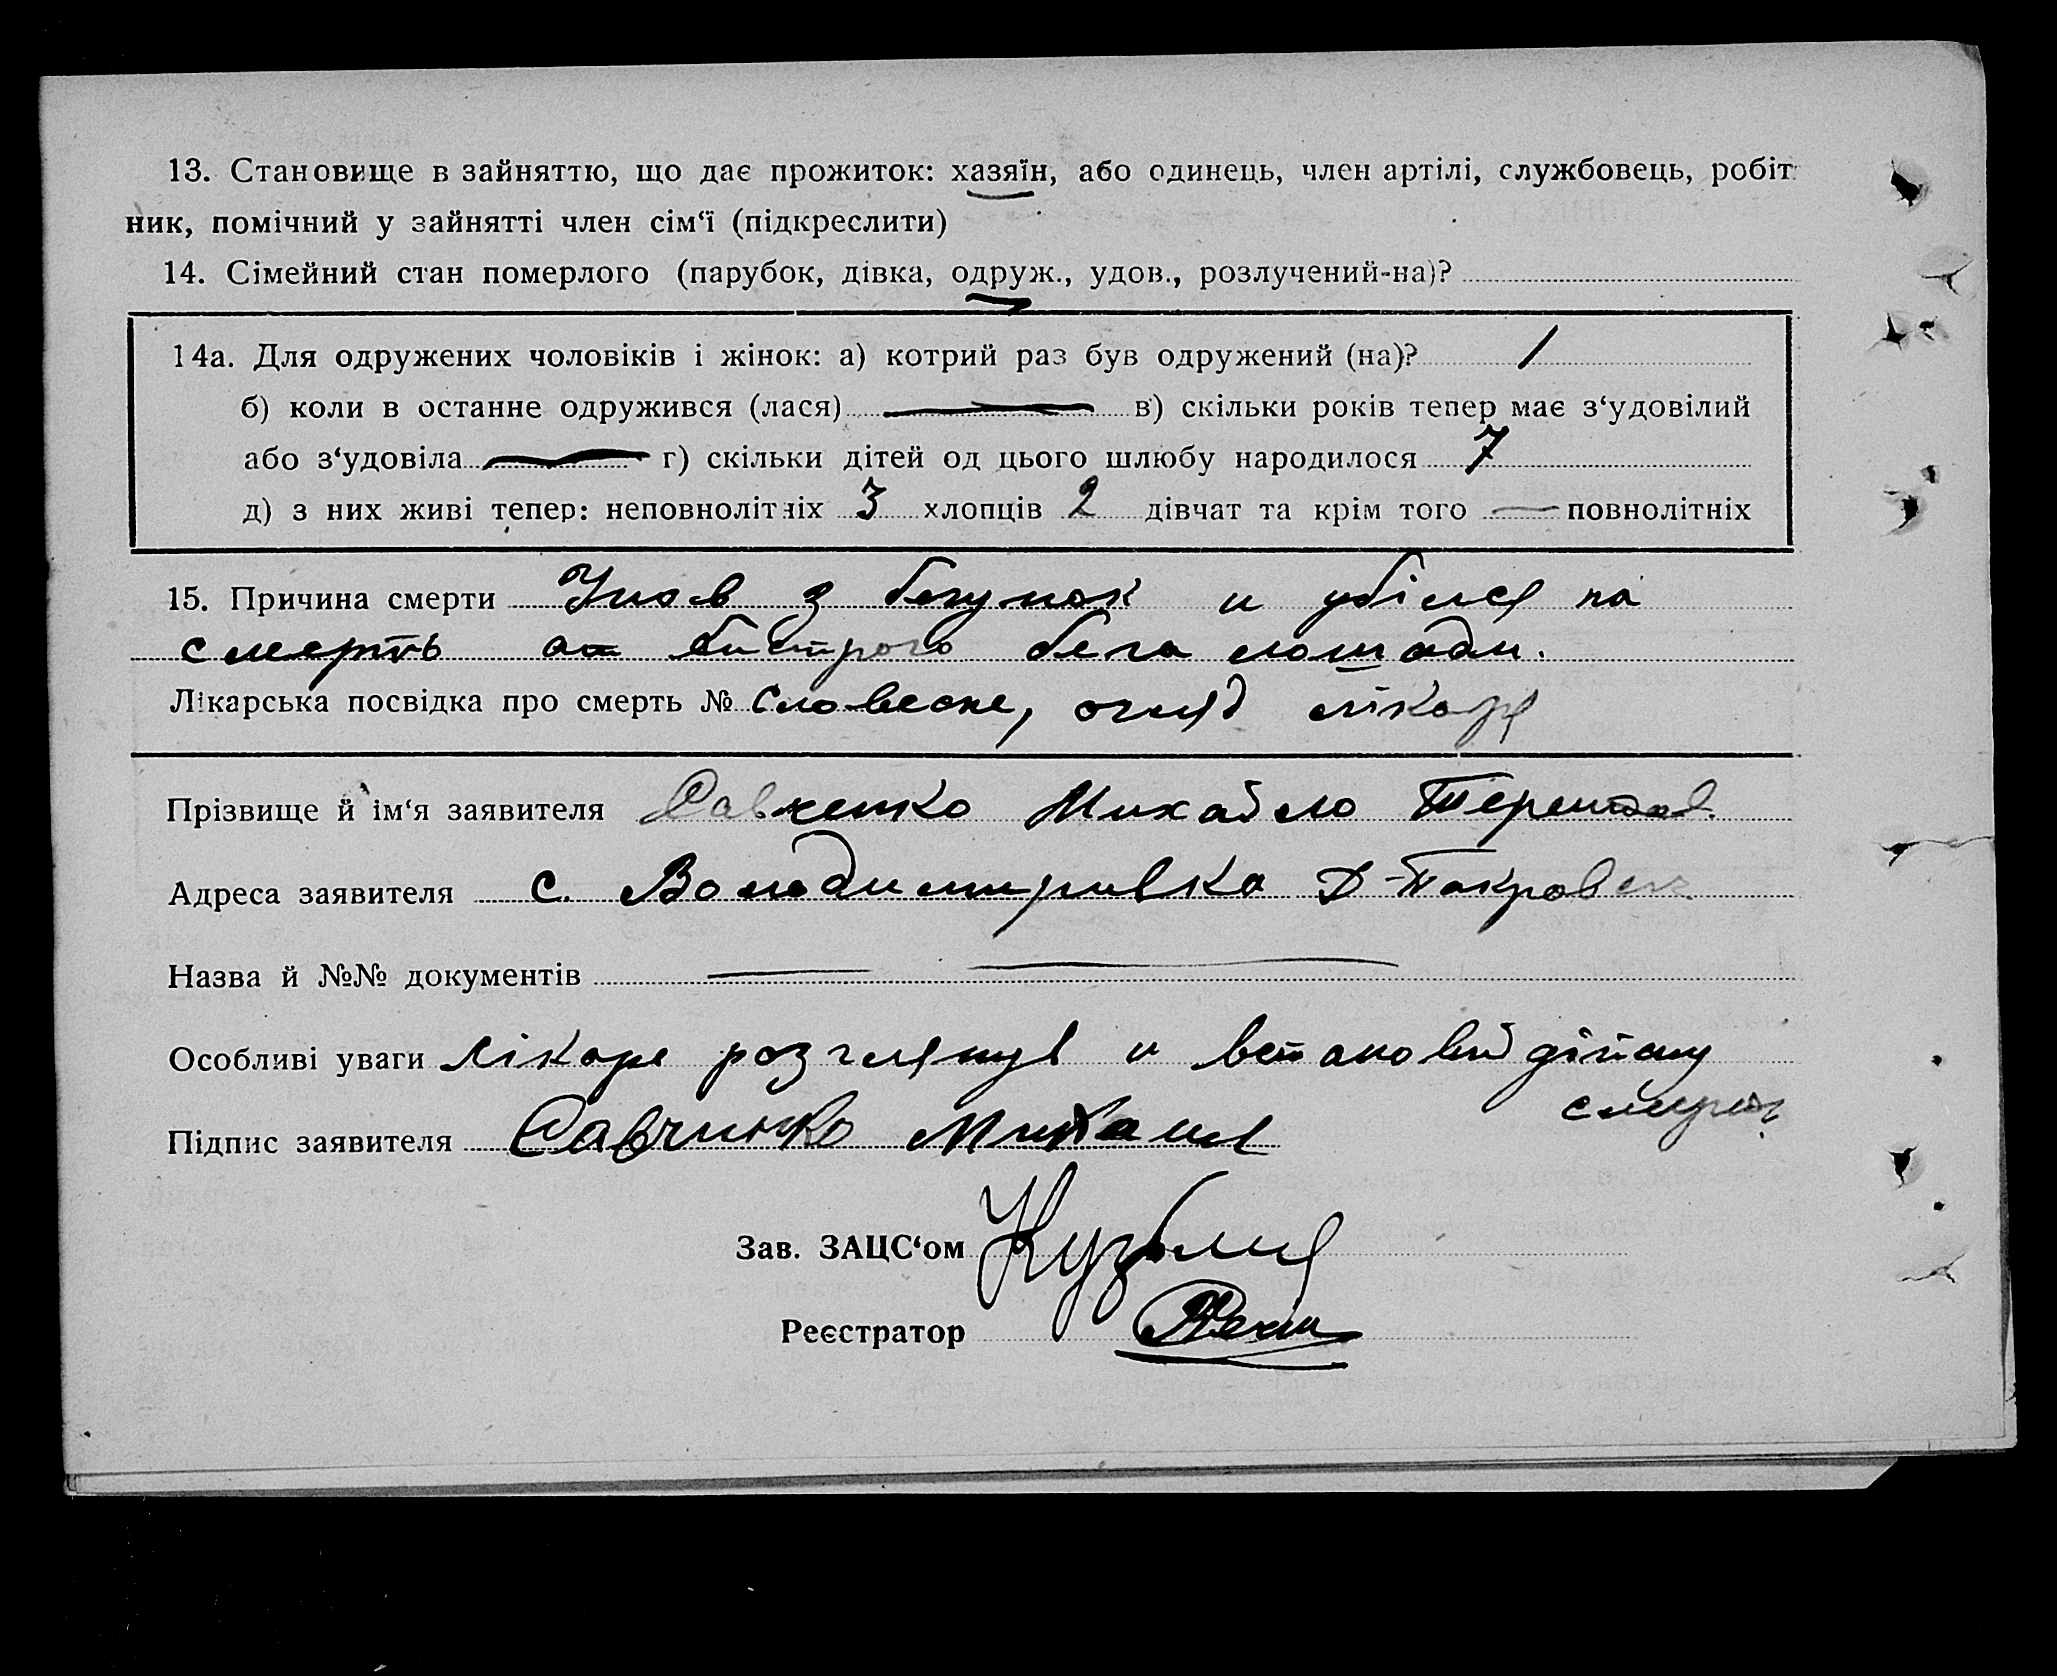 13. Становище в зайняттю, що дає прожиток: хазяїн, або одинець, член артілі, службовець, робіт
ник, помічний у зайнятті член сім‘ї (підкреслити)
14. Сімейний стан померлого (парубок, дівка, одруж., удов., розлучений-на)?
14а. Для одружених чоловіків і жінок: а) котрий раз був одружений (на)? 1
б) коли в останне одружився (лася) — в) скільки років тепер має з‘удовілий
або з‘удовіла — г) скільки дітей од цього шлюбу народилося 7
д) з них живі тепер: неповнолітніх 3 хлопців 2 дівчат та крім того — повнолітніх
15. Причина смерти Упав з бегунок и убілся на
смерть от бистрого бега лошади.
Лікарська посвідка про смерть № словесне, огляд лікаря
Прізвище й ім‘я заявителя Савченко Михайло
Адреса заявителя с. Володимирівка Д-Покровск
Назва й №№ документів —
Особливі уваги лікаре розглянув и встановив дійсну
смерть
Підпис заявителя Савчинко Михаил
Зав. ЗАЦС‘ом
Реєстратор